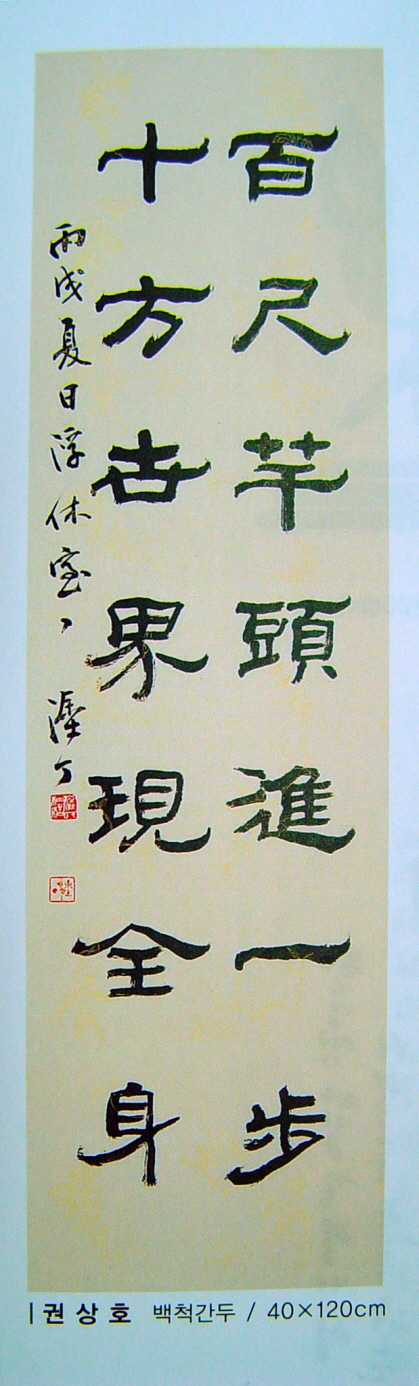 百尺竿頭進一步
十方世界現全身
丙戌夏日浮休室丶塗丁
권상호 백척간두 / 40×120cm